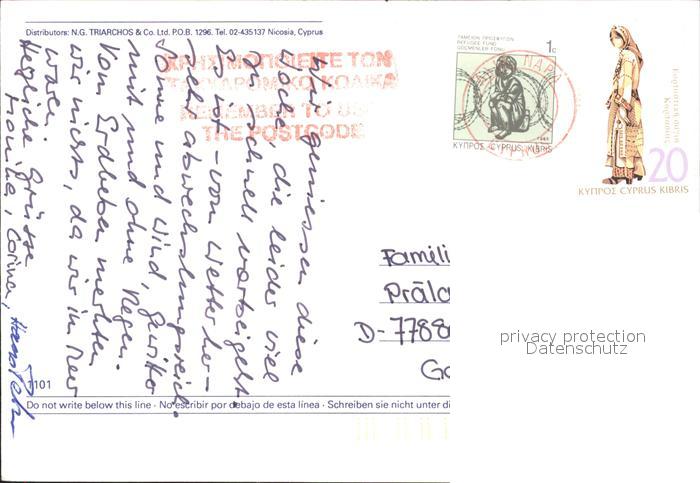 Distributors: N.G. TRIARCHOS & Co. Ltd. P.O.B. 1296. Tel. 02-435137 Nicosia, Cyprus
ΧΡΗΣΙΜΟΠΟΙΕΙΤΕ ΤΟΝ
ΤΑΧΥΔΡΟΜΙΚΟ ΚΩΔΙΚΑ
REMEMBER TO USE
THE POSTCODE
ΤΑΜΕΙΟΝ ΠΡΟΣΦΥΓΩΝ
REFUGEE FUND
GÖÇMENLER FONU
1c
ΚΥΠΡΟΣ CYPRUS KIBRIS
20
ΚΥΠΡΟΣ CYPRUS KIBRIS
Wir geniessen diese
Woche, die leider viel
zu schnell vorbeigeht.
Es ist - vom Wetter her -
sehr abwechslungsreich.
Sonne und Wind, Gewitter
mit und ohne Regen.
Vom Erdbeben merkten
wir nichts, da wir im Meer
waren.
Herzliche Grüsse
Monika, Corina,
Famili
Präla
D-7788
Ge
privacy protection
Datenschutz
1101
Do not write below this line · No escribir por debajo de esta línea · Schreiben sie nicht unter di